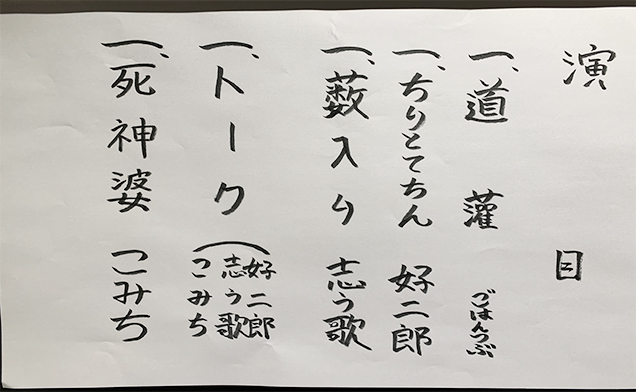 演目
一、道灌 ごはんつぶ
一、ちりとてちん 好二郎
一、薮入り 志う歌
一、トーク（好二郎
志う歌
こみち
一、死神婆 こみち